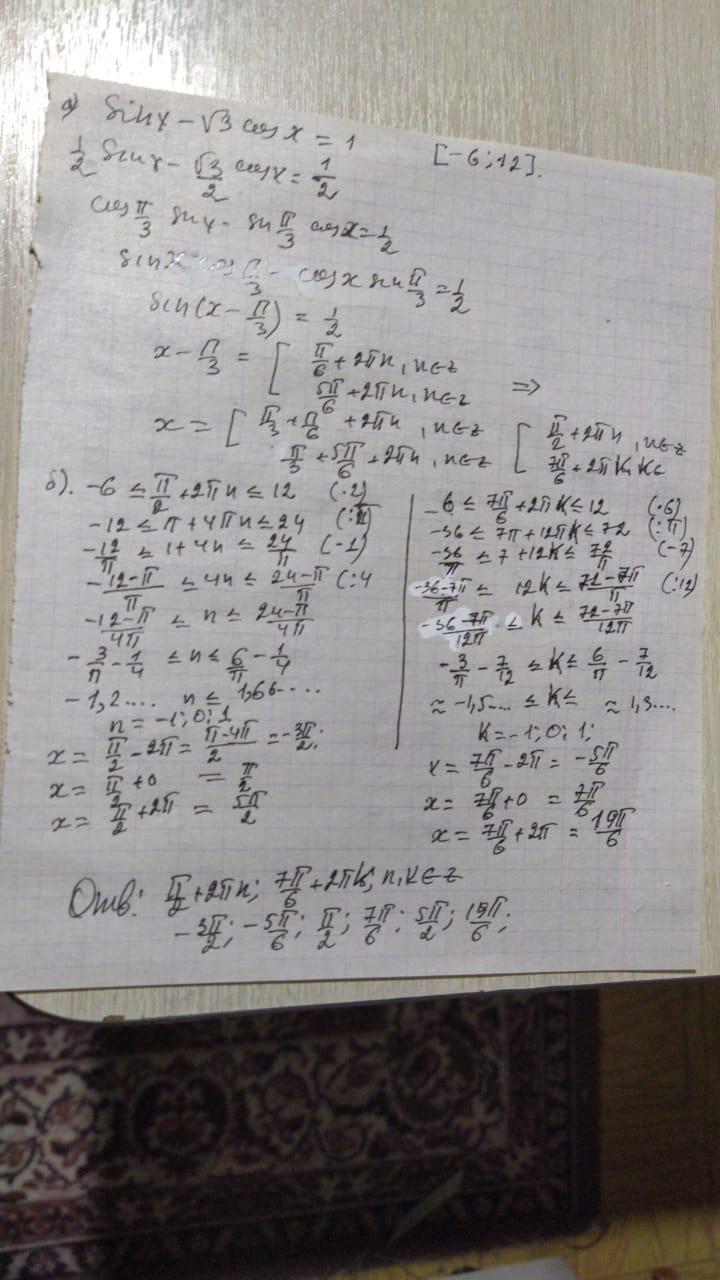 а) sinx - √3 cosx = 1 [-6; 12].
1/2 sinx - √3/2 cosx = 1/2
cos π/3 sinx - sin π/3 cosx = 1/2
sinx cos π/3 - cosx sin π/3 = 1/2
sin(x - π/3) = 1/2
x - π/3 = [ π/6 + 2πn, n∈z
5π/6 + 2πn, n∈z =>
x = [ π/3 + π/6 + 2πn, n∈z [ π/2 + 2πn, n∈z
π/3 + 5π/6 + 2πn, n∈z 7π/6 + 2πk, k∈
б). -6 ≤ π/2 + 2πn ≤ 12 (·2)
-12 ≤ π + 4πn ≤ 24 (:π)
-12/π ≤ 1 + 4n ≤ 24/π (-1)
-12-π/π ≤ 4n ≤ 24-π/π (:4
-12-π/4π ≤ n ≤ 24-π/4π
-3/π - 1/4 ≤ n ≤ 6/π - 1/4
-1,2.... n ≤ 1,66....
n = -1; 0; 1
x = π/2 - 2π = π-4π/2 = -3π/2;
x = π/2 + 0 = π/2
x = π/2 + 2π = 5π/2
-6 ≤ 7π/6 + 2πk ≤ 12 (·6)
-36 ≤ 7π + 12πk ≤ 72 (:π)
-36/π ≤ 7 + 12k ≤ 72/π (-7)
-36-7π/π ≤ 12k ≤ 72-7π/π (:12)
-36-7π/12π ≤ k ≤ 72-7π/12π
-3/π - 7/12 ≤ k ≤ 6/π - 7/12
≈ -1,5.... ≤ k ≤ ≈ 1,3....
k = -1; 0; 1;
x = 7π/6 - 2π = -5π/6
x = 7π/6 + 0 = 7π/6
x = 7π/6 + 2π = 19π/6
Отв: π/2 + 2πn; 7π/6 + 2πk; n,k∈z
-3π/2; -5π/6; π/2; 7π/6; 5π/2; 19π/6;